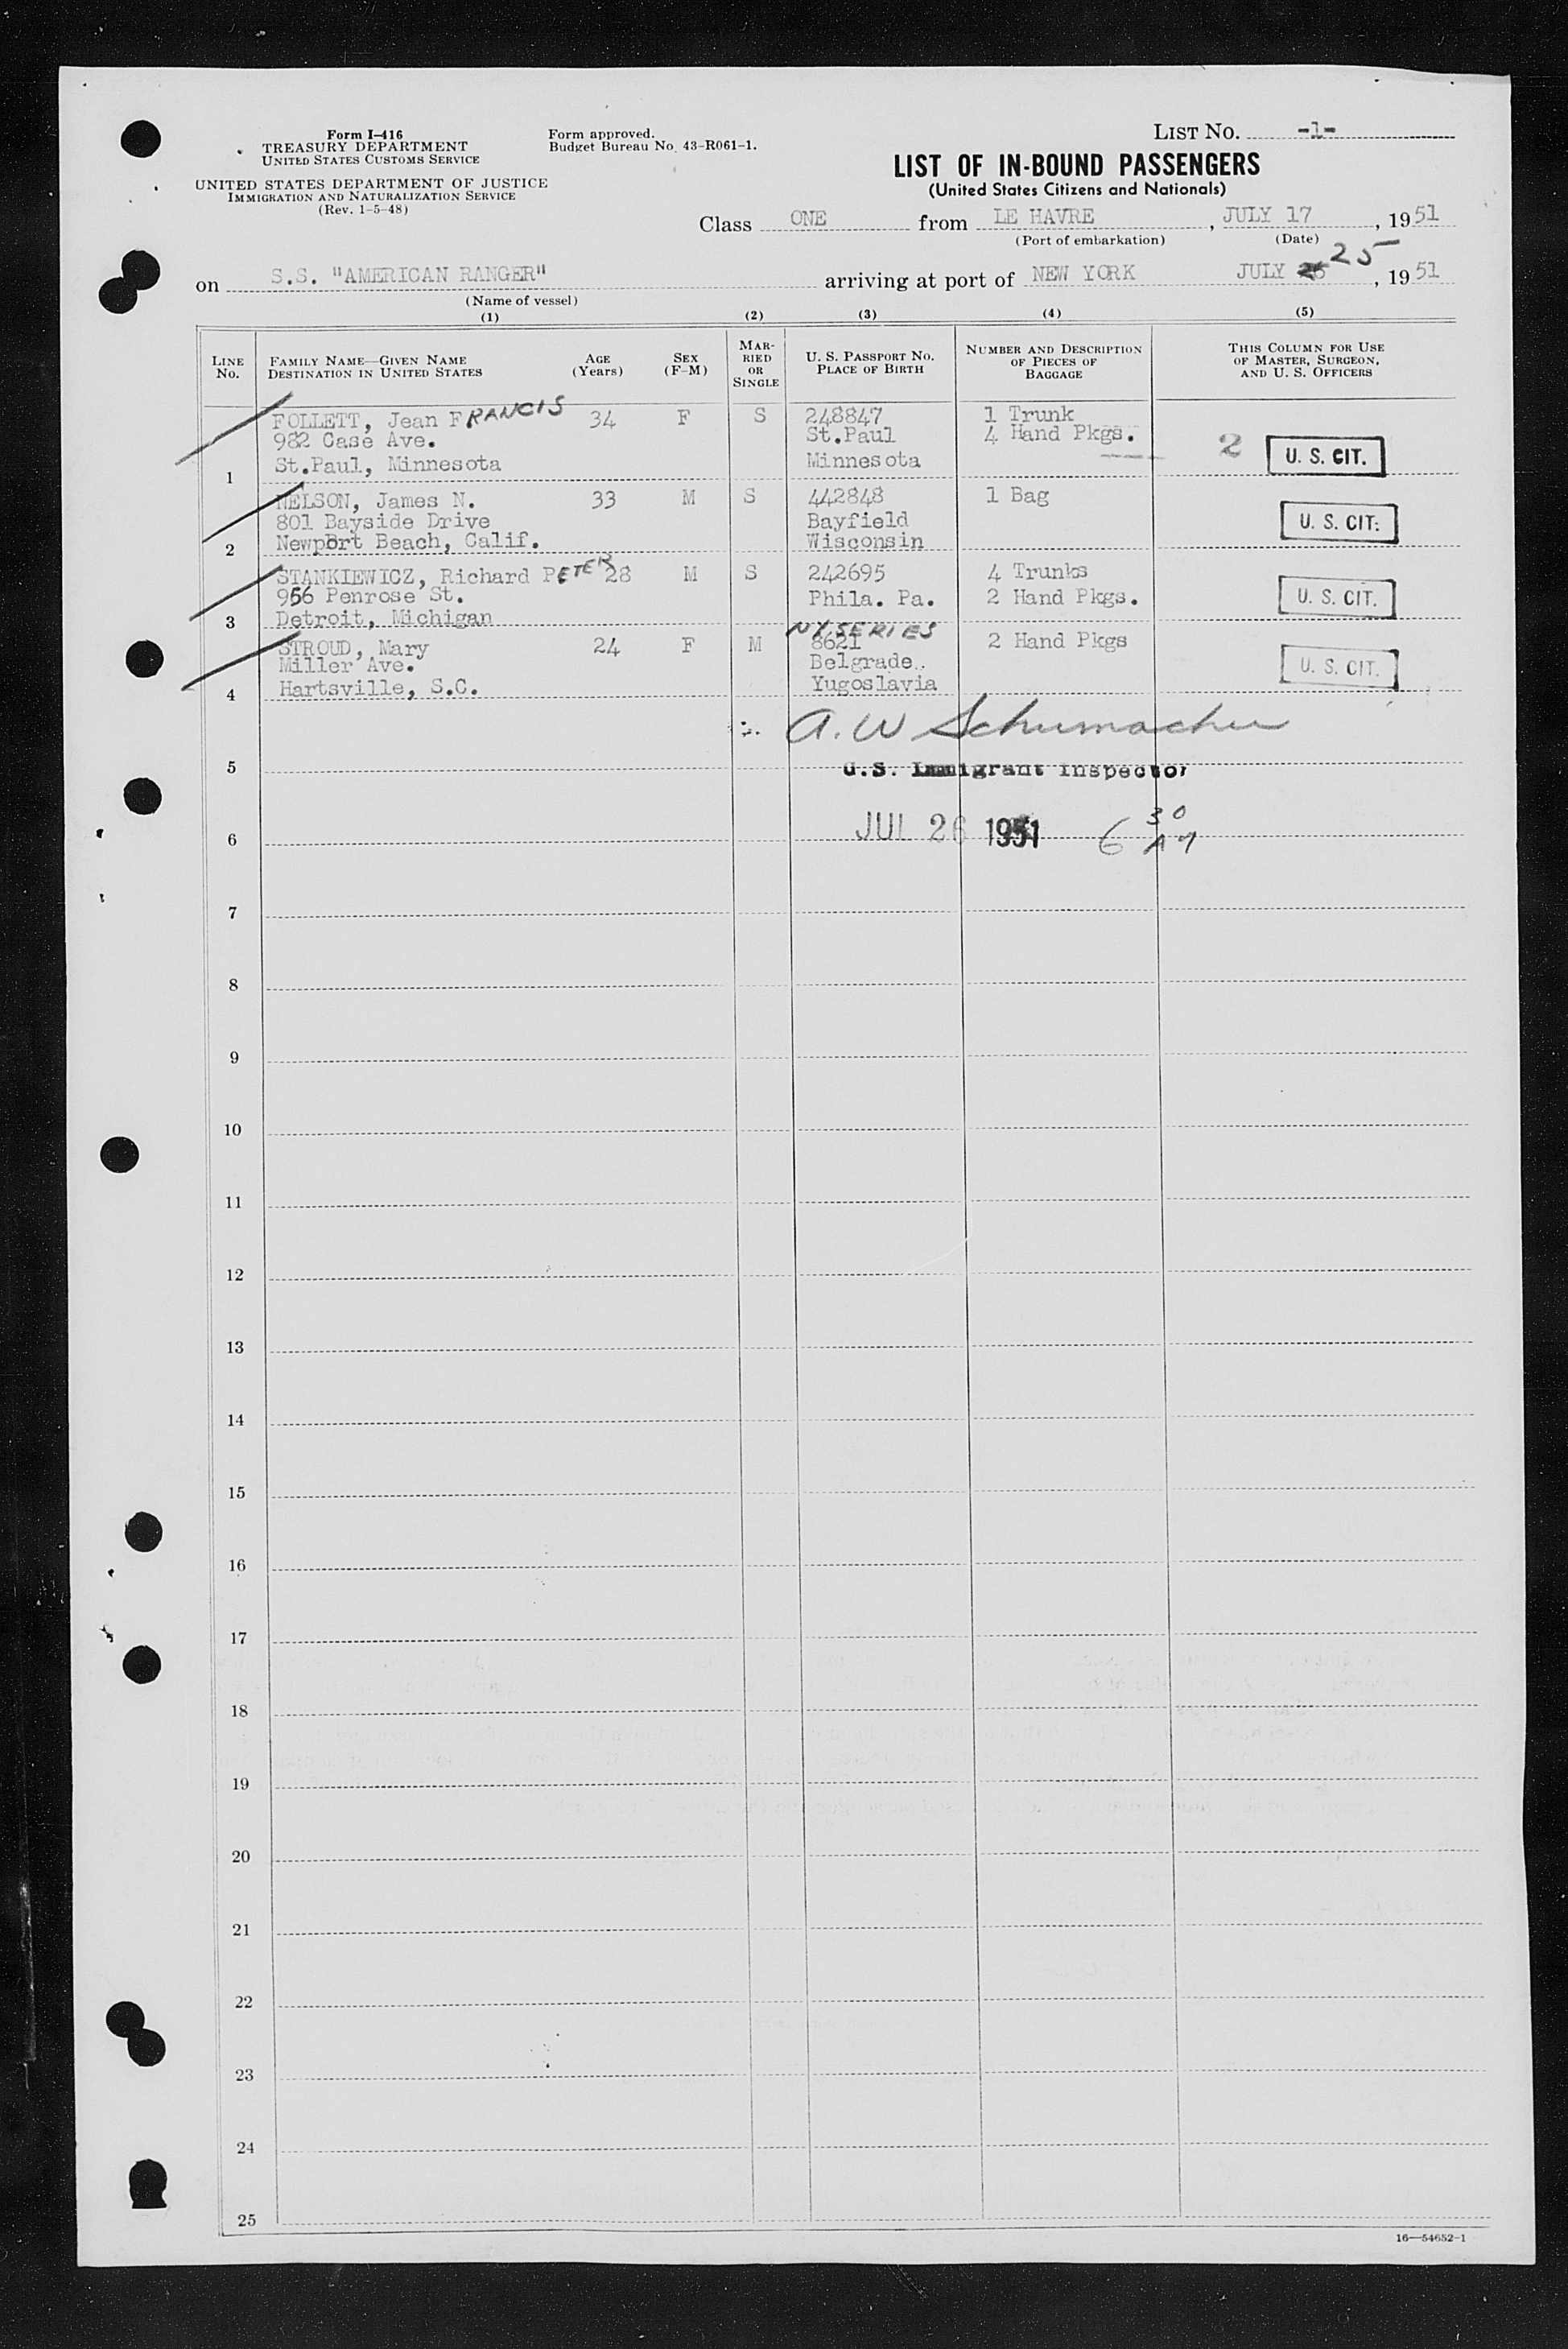 Form I-416
TREASURY DEPARTMENT
UNITED STATES CUSTOMS SERVICE
UNITED STATES DEPARTMENT OF JUSTICE
IMMIGRATION AND NATURALIZATION SERVICE
(Rev. 1-5-48)
Form approved.
Budget Bureau No. 43-R061-1.
LIST NO. -1-
LIST OF IN-BOUND PASSENGERS
(United States Citizens and Nationals)
Class ONE from LE HAVRE, JULY 17, 1951
(Port of embarkation) (Date)
on S.S. "AMERICAN RANGER" arriving at port of NEW YORK JULY 25, 1951
(Name of vessel)
(1) (2) (3) (4) (5)
LINE No.
FAMILY NAME—GIVEN NAME
DESTINATION IN UNITED STATES
AGE (Years)
SEX (F-M)
MARRIED OR SINGLE
U. S. PASSPORT NO.
PLACE OF BIRTH
NUMBER AND DESCRIPTION OF PIECES OF BAGGAGE
THIS COLUMN FOR USE OF MASTER, SURGEON, AND U. S. OFFICERS
FOLLETT, Jean FRANCIS 34 F S 248847 1 Trunk
982 Case Ave. St.Paul 4 Hand Pkgs. 2 U. S. CIT.
1 St.Paul, Minnesota Minnesota
NELSON, James N. 33 M S 442848 1 Bag
801 Bayside Drive Bayfield U. S. CIT.
2 Newport Beach, Calif. Wisconsin
STANKIEWICZ, Richard PETER 28 M S 242695 4 Trunks
956 Penrose St. Phila. Pa. 2 Hand Pkgs. U. S. CIT.
3 Detroit, Michigan
NY SERIES
STROUD, Mary 24 F M 8621 2 Hand Pkgs
Miller Ave. Belgrade U. S. CIT.
4 Hartsville, S.C. Yugoslavia
A. W Schumacher
5 U.S. Immigrant Inspector
6 JUL 26 1951 6 30 AM
7
8
9
10
11
12
13
14
15
16
17
18
19
20
21
22
23
24
25
16—54652-1